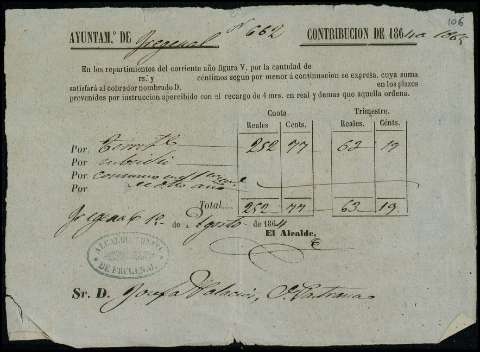 106
AYUNTAM.º DE Fregenal Nº 662 CONTRIBUCION DE 1864 a 1865
En los repartimientos del corriente año figura V. por la cantidad de
rs. y céntimos segun por menor á continuacion se espresa, cuya suma
satisfará al cobrador nombrado D. en los plazos
prevenidos por instruccion apercibido con el recargo de 4 mrs. en real y demas que aquella ordena.
Cuota Trimestre.
Reales Cénts. Reales. Cénts.
Por 252 77 63 19
Por subsidio
Por consumo
Por de este año
Total 252 77 63 19
Fregenal 12 de Agosto de 1864
El Alcalde,
ALCALDIA
DE FREGENAL
Sr. D. Josefa